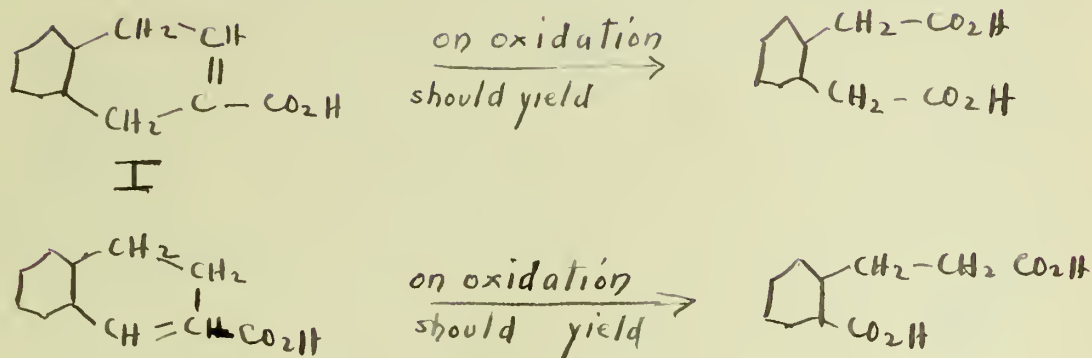 CH2-CH
||
CH2-C-CO2H
on oxidation
should yield
CH2-CO2H
CH2-CO2H
I
CH2
CH2
CH=CH-CO2H
on oxidation
should yield
CH2-CH2 CO2H
CO2H